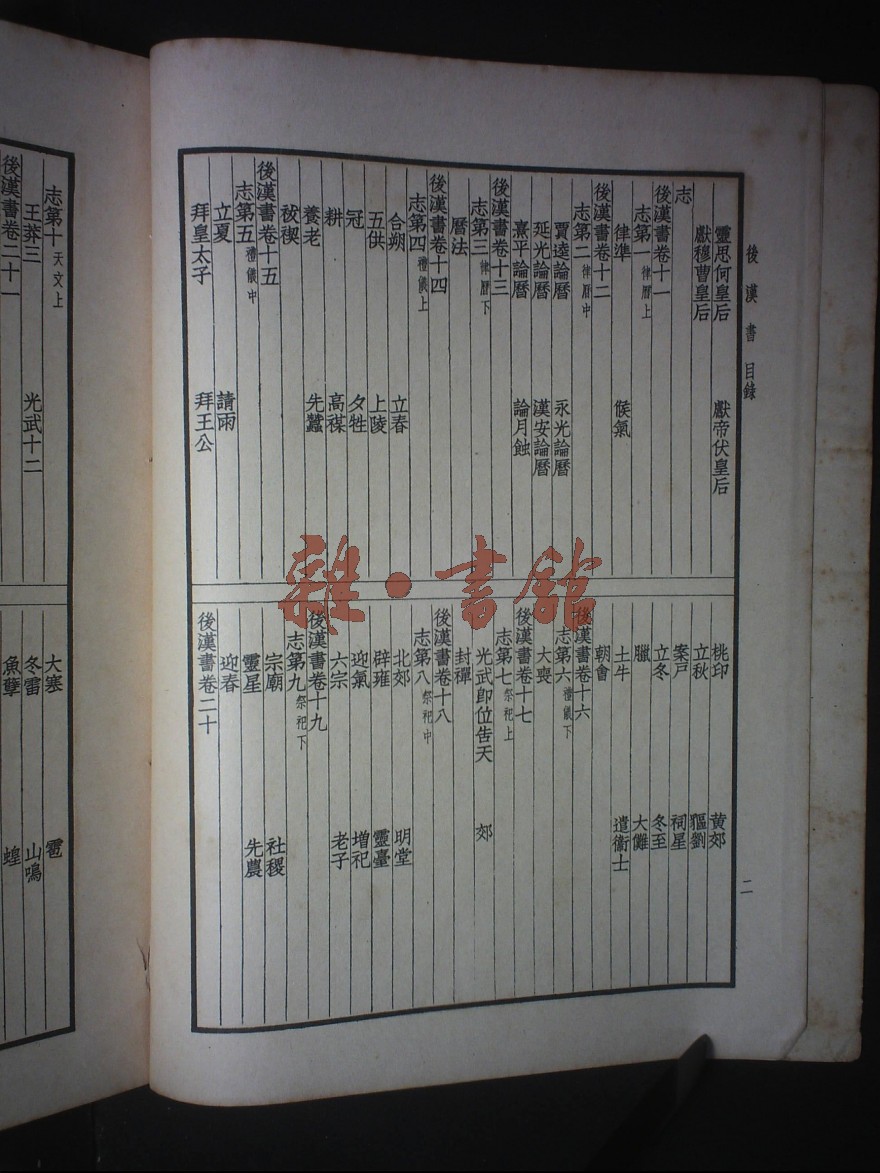 後漢書 目錄
二
靈思何皇后 獻帝伏皇后
獻穆曹皇后
志
後漢書卷十一
志第一律曆上
律準 候氣
後漢書卷十二
志第二律曆中
賈逵論曆 永光論曆
延光論曆 漢安論曆
熹平論曆 論月蝕
後漢書卷十三
志第三律曆下
曆法
後漢書卷十四
志第四禮儀上
合朔 立春
五供 上陵
冠 夕牲
耕 高禖
養老 先蠶
祓禊
後漢書卷十五
志第五禮儀中
立夏 請雨
拜皇太子 拜王公
桃印 黃郊
立秋 貙劉
案戶 祠星
立冬 冬至
臘 大儺
土牛 遣衞士
朝會
後漢書卷十六
志第六禮儀下
大喪
後漢書卷十七
志第七祭祀上
光武即位告天 郊
封禪
後漢書卷十八
志第八祭祀中
北郊 明堂
辟雍 靈臺
迎氣 增祀
六宗 老子
後漢書卷十九
志第九祭祀下
宗廟 社稷
靈星 先農
迎春
後漢書卷二十
志第十天文上
王莽三 光武十二
後漢書卷二十一
大寒 雹
冬雷 山鳴
魚孽 蝗
雜·書館